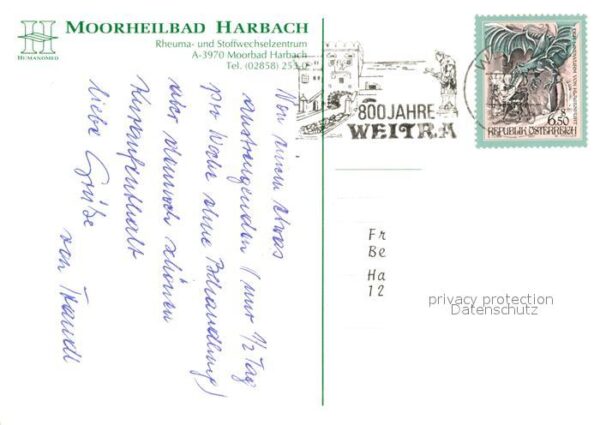 MOORHEILBAD HARBACH
Rheuma- und Stoffwechselzentrum
A-3970 Moorbad Harbach
Tel. (02858) 255-0
HUMANOMED
800 JAHRE
WEITRA
6.50
REPUBLIK ÖSTERREICH
Von einem etwas
anstrengenden (nur 1/2 Tag
pro Woche ohne Behandlung)
aber dennoch schönen
Kuraufenthalt
liebe Grüße
von
Fr
Be
Ha
12
privacy protection
Datenschutz